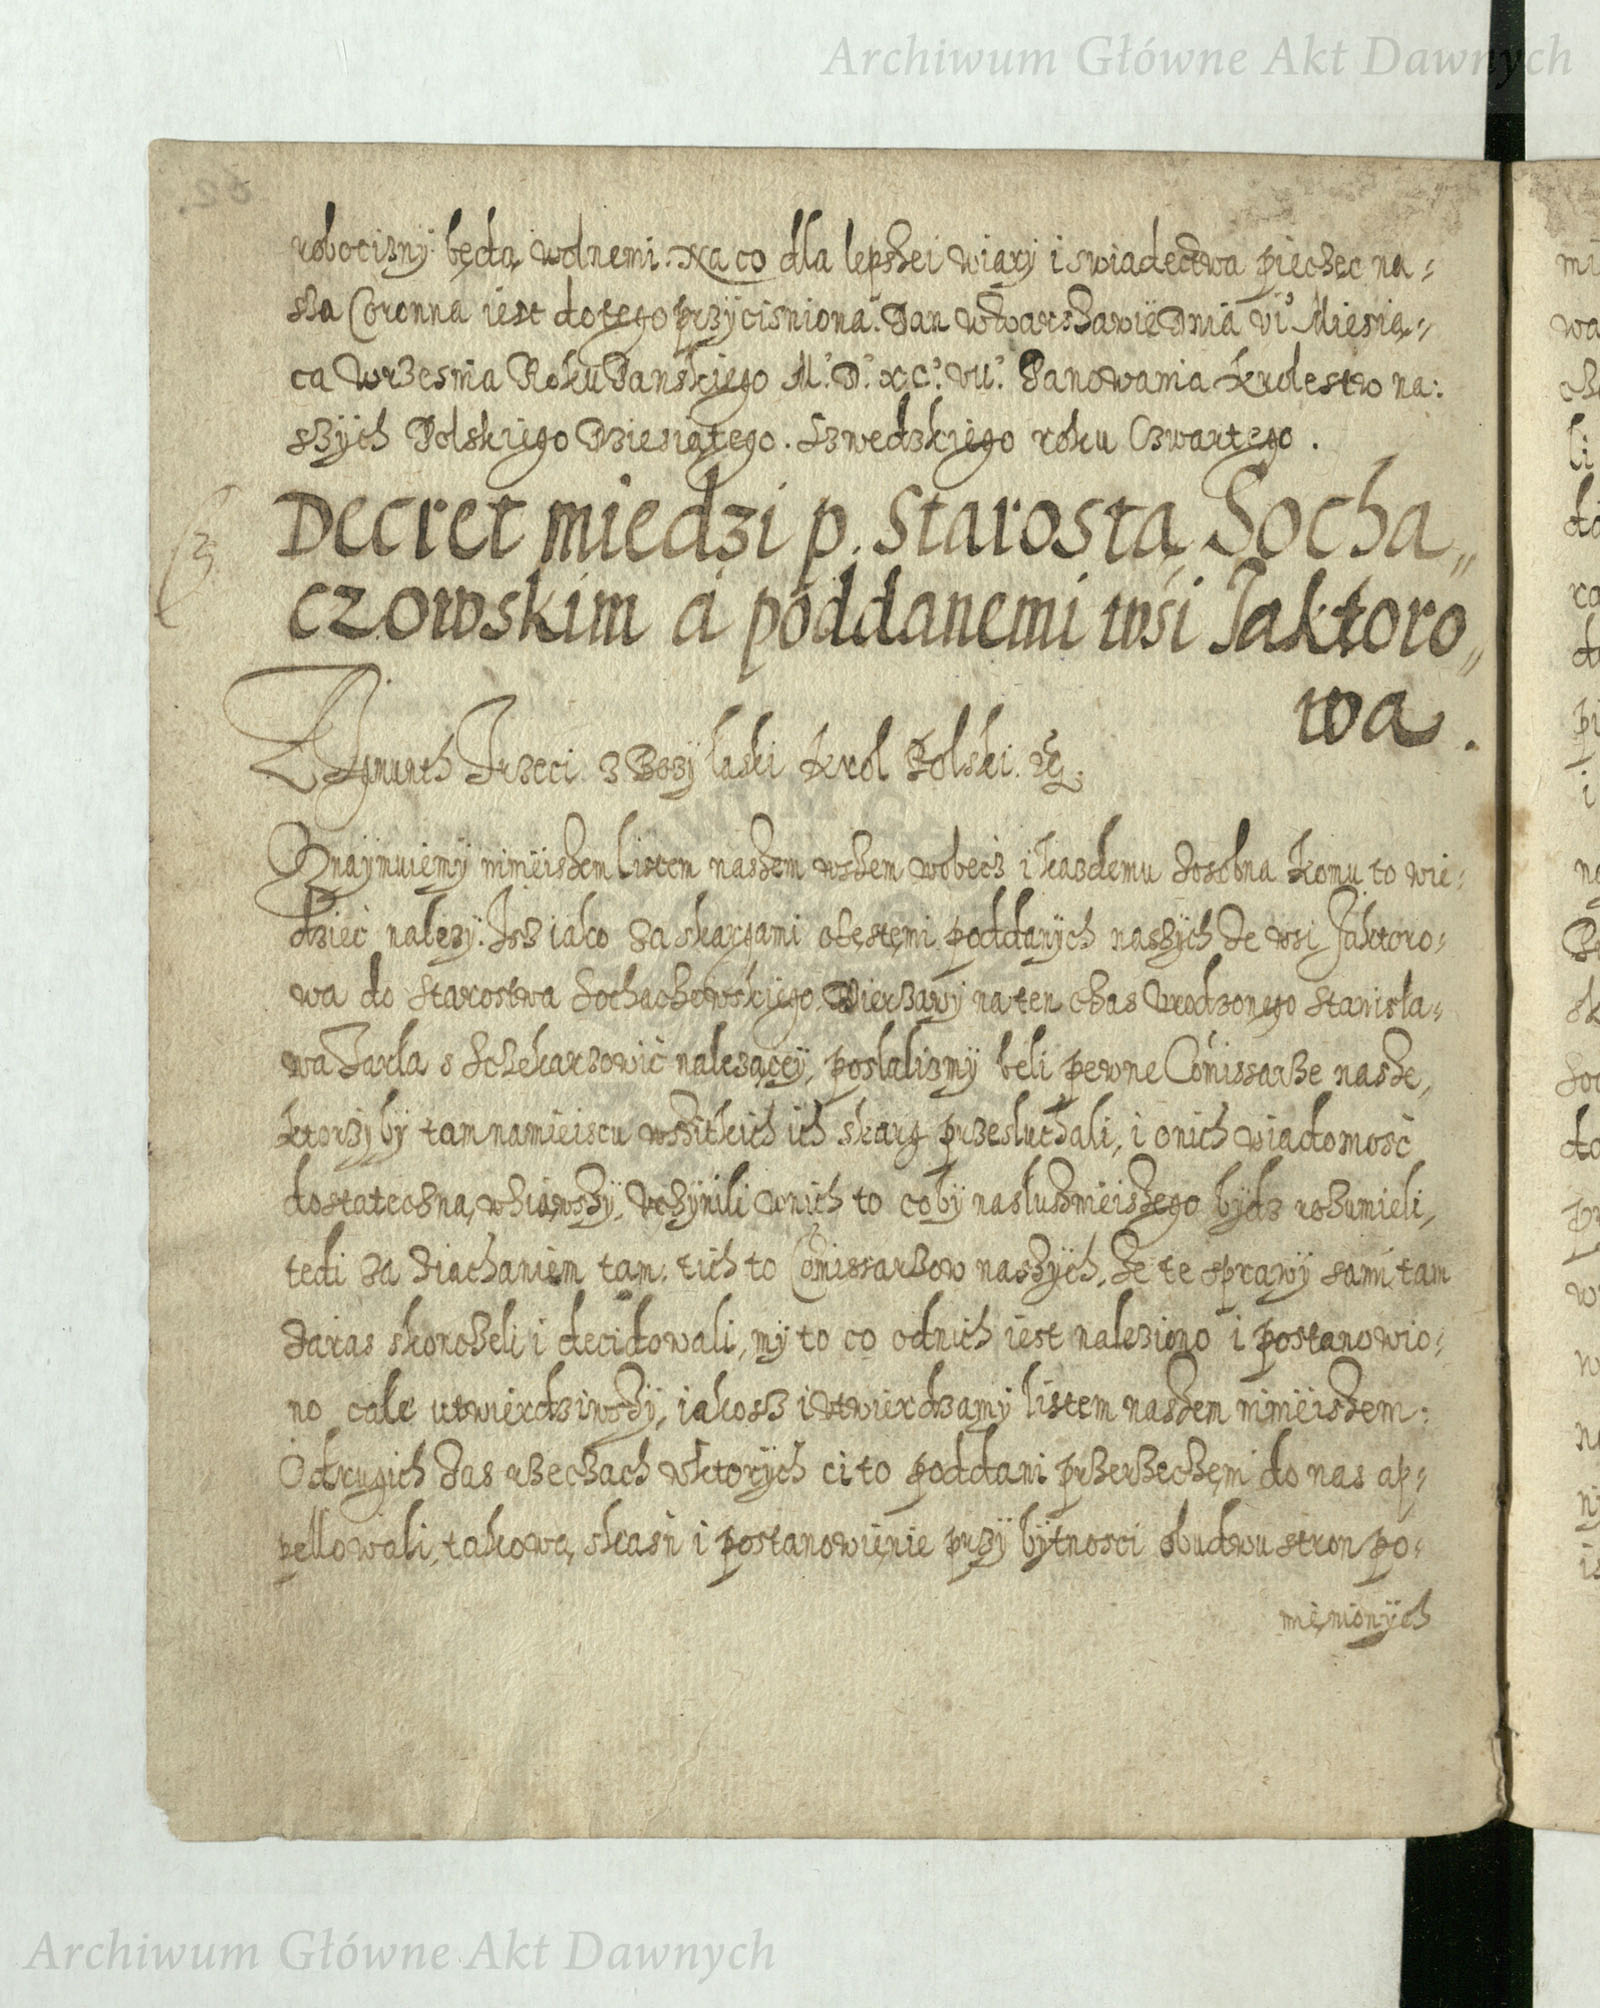 Archiwum Główne Akt Dawnych
robocizny będą wolnemi. Na co dla lepszei wiary i swiadectwa pieczec na=
sza Coronna iest do tego przycisniona. Dan w Warszawie Dnia vi. Miesią=
ca Wrzesnia Roku Panskiego M. D. XC. VII. Panowania Krolestw na:
szych Polskiego Dziesiątego. Szwedzkiego roku Czwartego.
Decret miedzi p. Starostą Socha„
czowskim a poddanemi wsi Jaktoro„
wa.
Zigmunth Trzeci z Bozy łaski Krol Polski. etc.
Oznaymuiemy ninieiszem listem naszem wszem wobecz i kazdemu zosobna komu to wie=
dziec nalezy. Isz iako za skargami częstemi poddanych naszych ze wsi Jaktoro=
wa do Starostwa Sochaczewskiego Dierzawy na ten czas Urodzonego Stanisła=
wa Tarła s Sczekarzowic nalezącey, poslalismy beli pewne Comissarze nasze,
ktorzyby tam na mieiscu wszitkich ich skarg przesluchali, i o nich wiadomosc
dostateczną wziąwszy, Uczynili w nich to coby nasłuszneiszego bydz rozumieli,
tedi za ziachaniem tam tich to Comissarzow naszych, ze te sprawy sami tam
zaras skonczeli i decidowali, my to co od nich iest naleziono i postanowio=
no cale utwierdziwszy, iakosz i Utwierdzamy listem naszem ninieiszem:
O drugich zas rzeczach w ktorych ci to poddani przerzeczeni do nas ap=
pellowali, takową skazń i postanowienie przy bytnosci obudwu stron po=
mienionych
Archiwum Główne Akt Dawnych